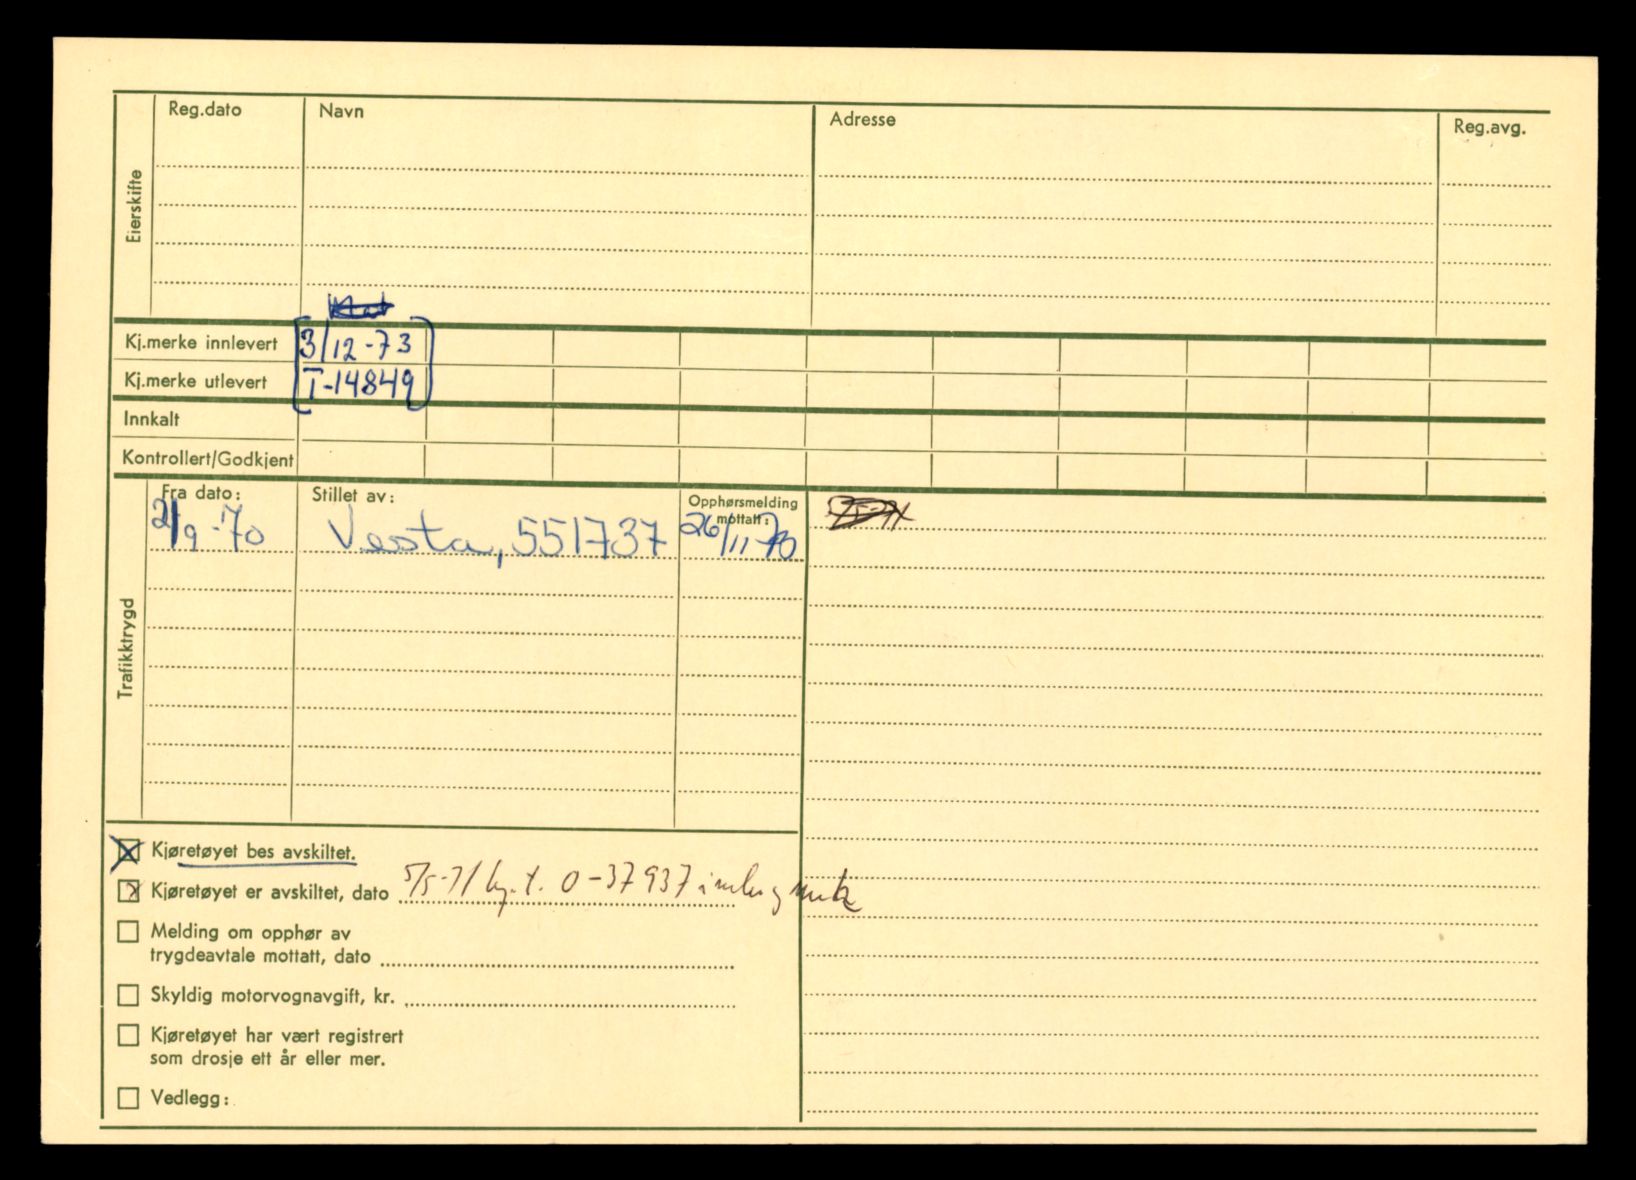 Reg.dato Navn Adresse Reg.avg.
Eierskifte
Kj.merke innlevert 3/12-73
Kj.merke utlevert T-14849
Innkalt
Kontrollert/Godkjent
Trafikktrygd
Fra dato: Stillet av: Opphørsmelding mottatt:
2/9-70 Vesta, 551737 26/11-70
Kjøretøyet bes avskiltet.
Kjøretøyet er avskiltet, dato 5/5-71 0-37937
Melding om opphør av
trygdeavtale mottatt, dato
Skyldig motorvognavgift, kr.
Kjøretøyet har vært registrert
som drosje ett år eller mer.
Vedlegg: